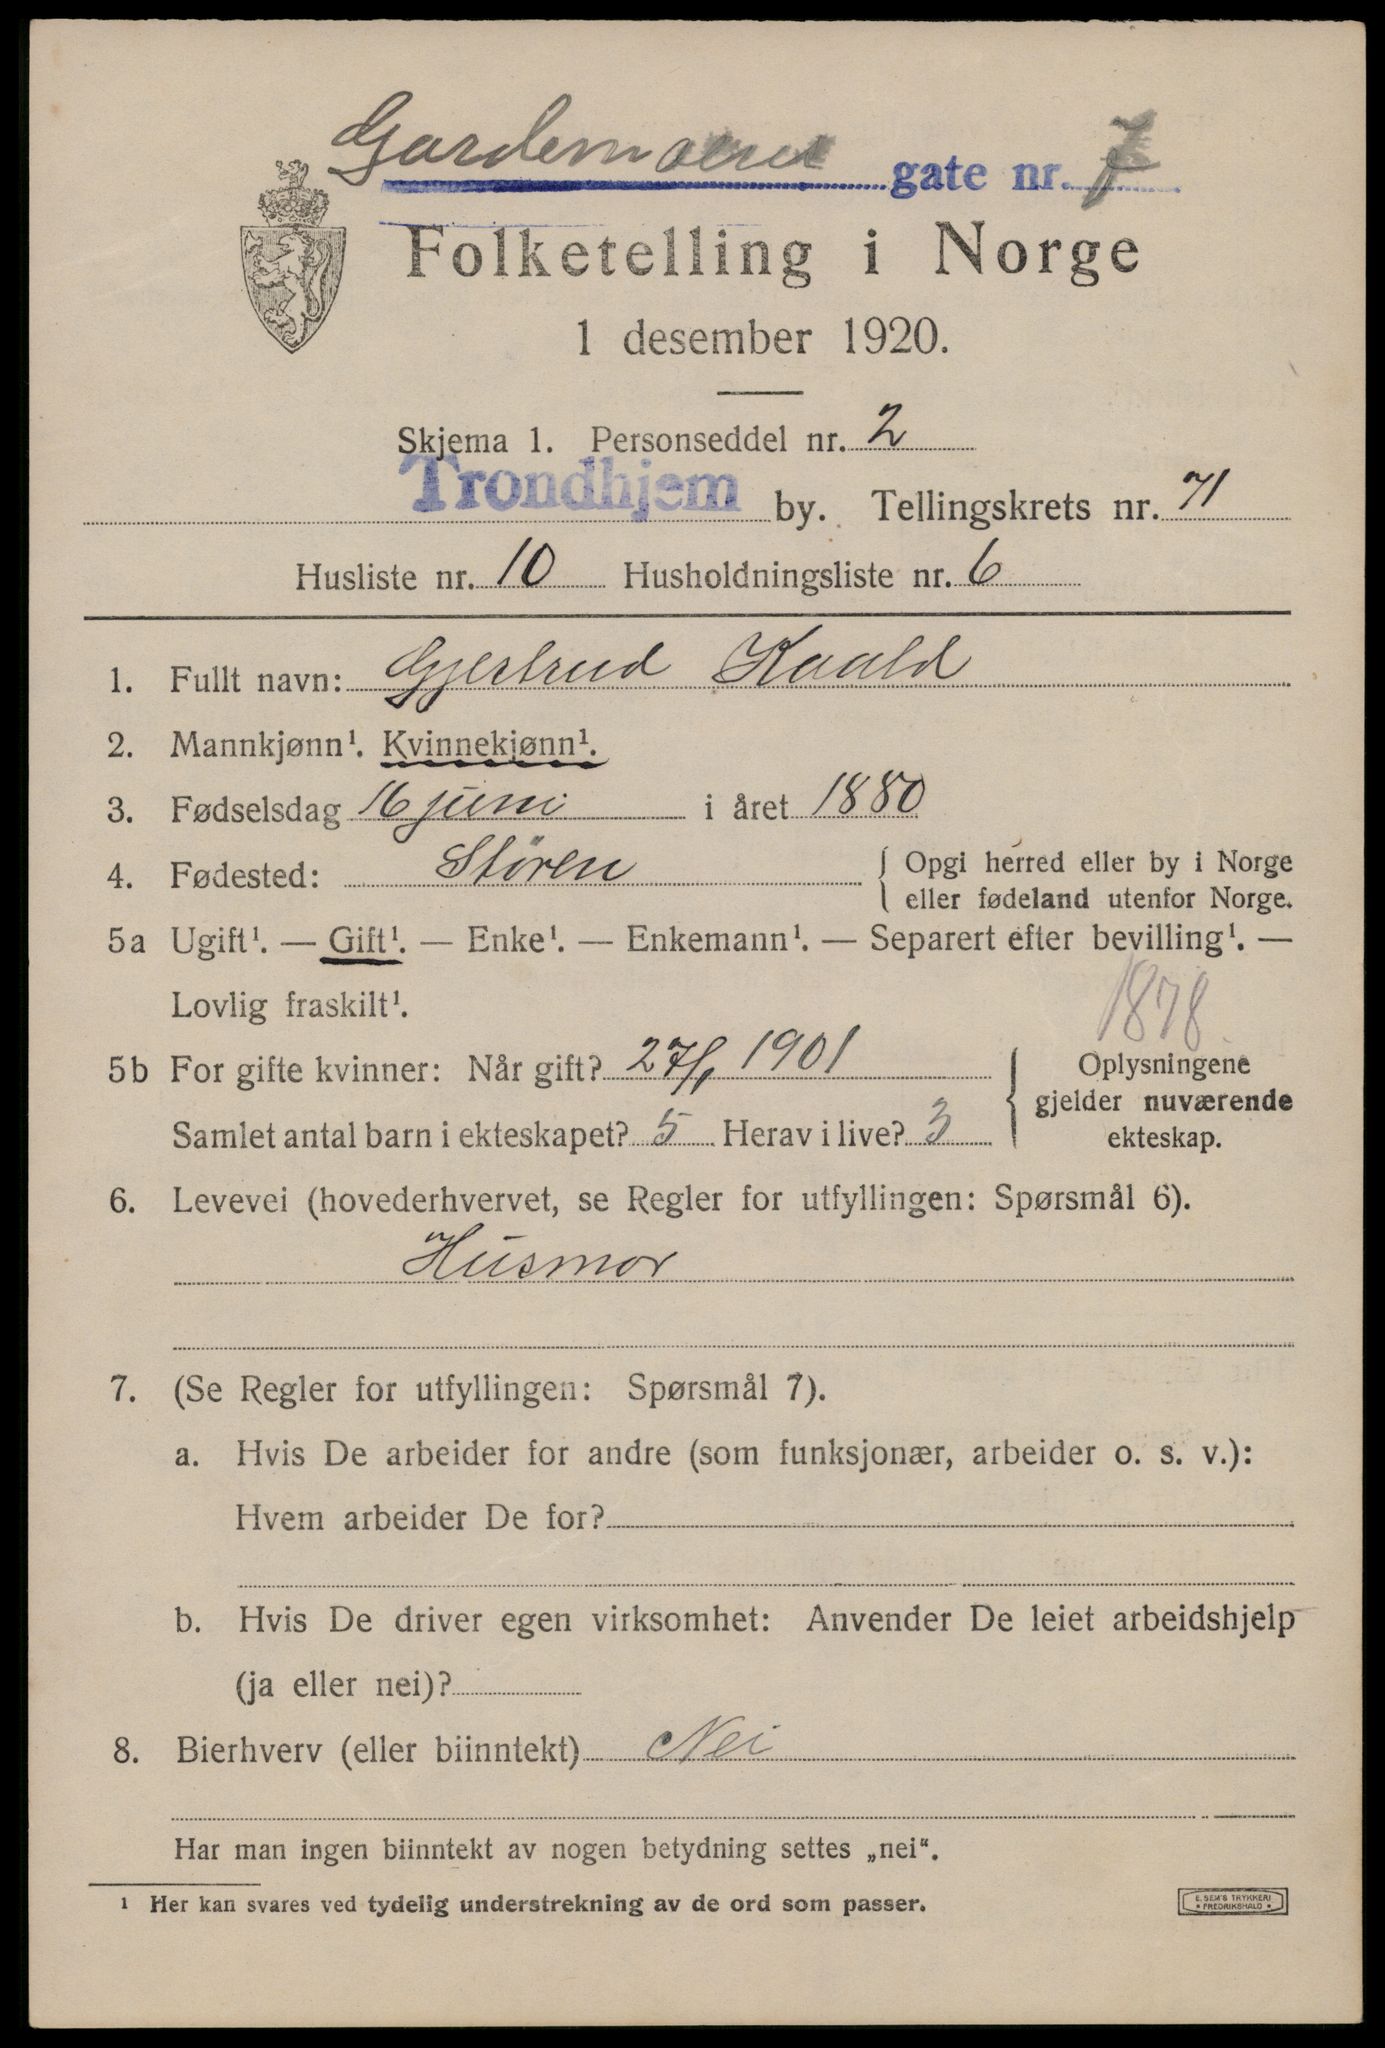 Gardemoens gate nr. 7
Folketelling i Norge
1 desember 1920.
Skjema 1. Personseddel nr. 2
Trondhjem by. Tellingskrets nr. 71
Husliste nr. 10 Husholdningsliste nr. 6
1. Fullt navn: Gjertrud Kaald
2. Mannkjønn¹. Kvinnekjønn¹.
3. Fødselsdag 16 juni i året 1880
4. Fødested: Støren { Opgi herred eller by i Norge
eller fødeland utenfor Norge.
5a Ugift¹. — Gift¹. — Enke¹. — Enkemann¹. — Separert efter bevilling¹. —
Lovlig fraskilt¹.
1878
5b For gifte kvinner: Når gift? 27/1 1901
Samlet antal barn i ekteskapet? 5 Herav i live? 3
{ Oplysningene
gjelder nuværende
ekteskap.
6. Levevei (hovederhvervet, se Regler for utfyllingen: Spørsmål 6).
Husmor
7. (Se Regler for utfyllingen: Spørsmål 7).
a. Hvis De arbeider for andre (som funksjonær, arbeider o. s. v.):
Hvem arbeider De for?
b. Hvis De driver egen virksomhet: Anvender De leiet arbeidshjelp
(ja eller nei)?
8. Bierhverv (eller biinntekt) Nei
Har man ingen biinntekt av nogen betydning settes „nei“.
¹ Her kan svares ved tydelig understrekning av de ord som passer.
E. SEM'S TRYKKERI
* FREDRIKSHALD *